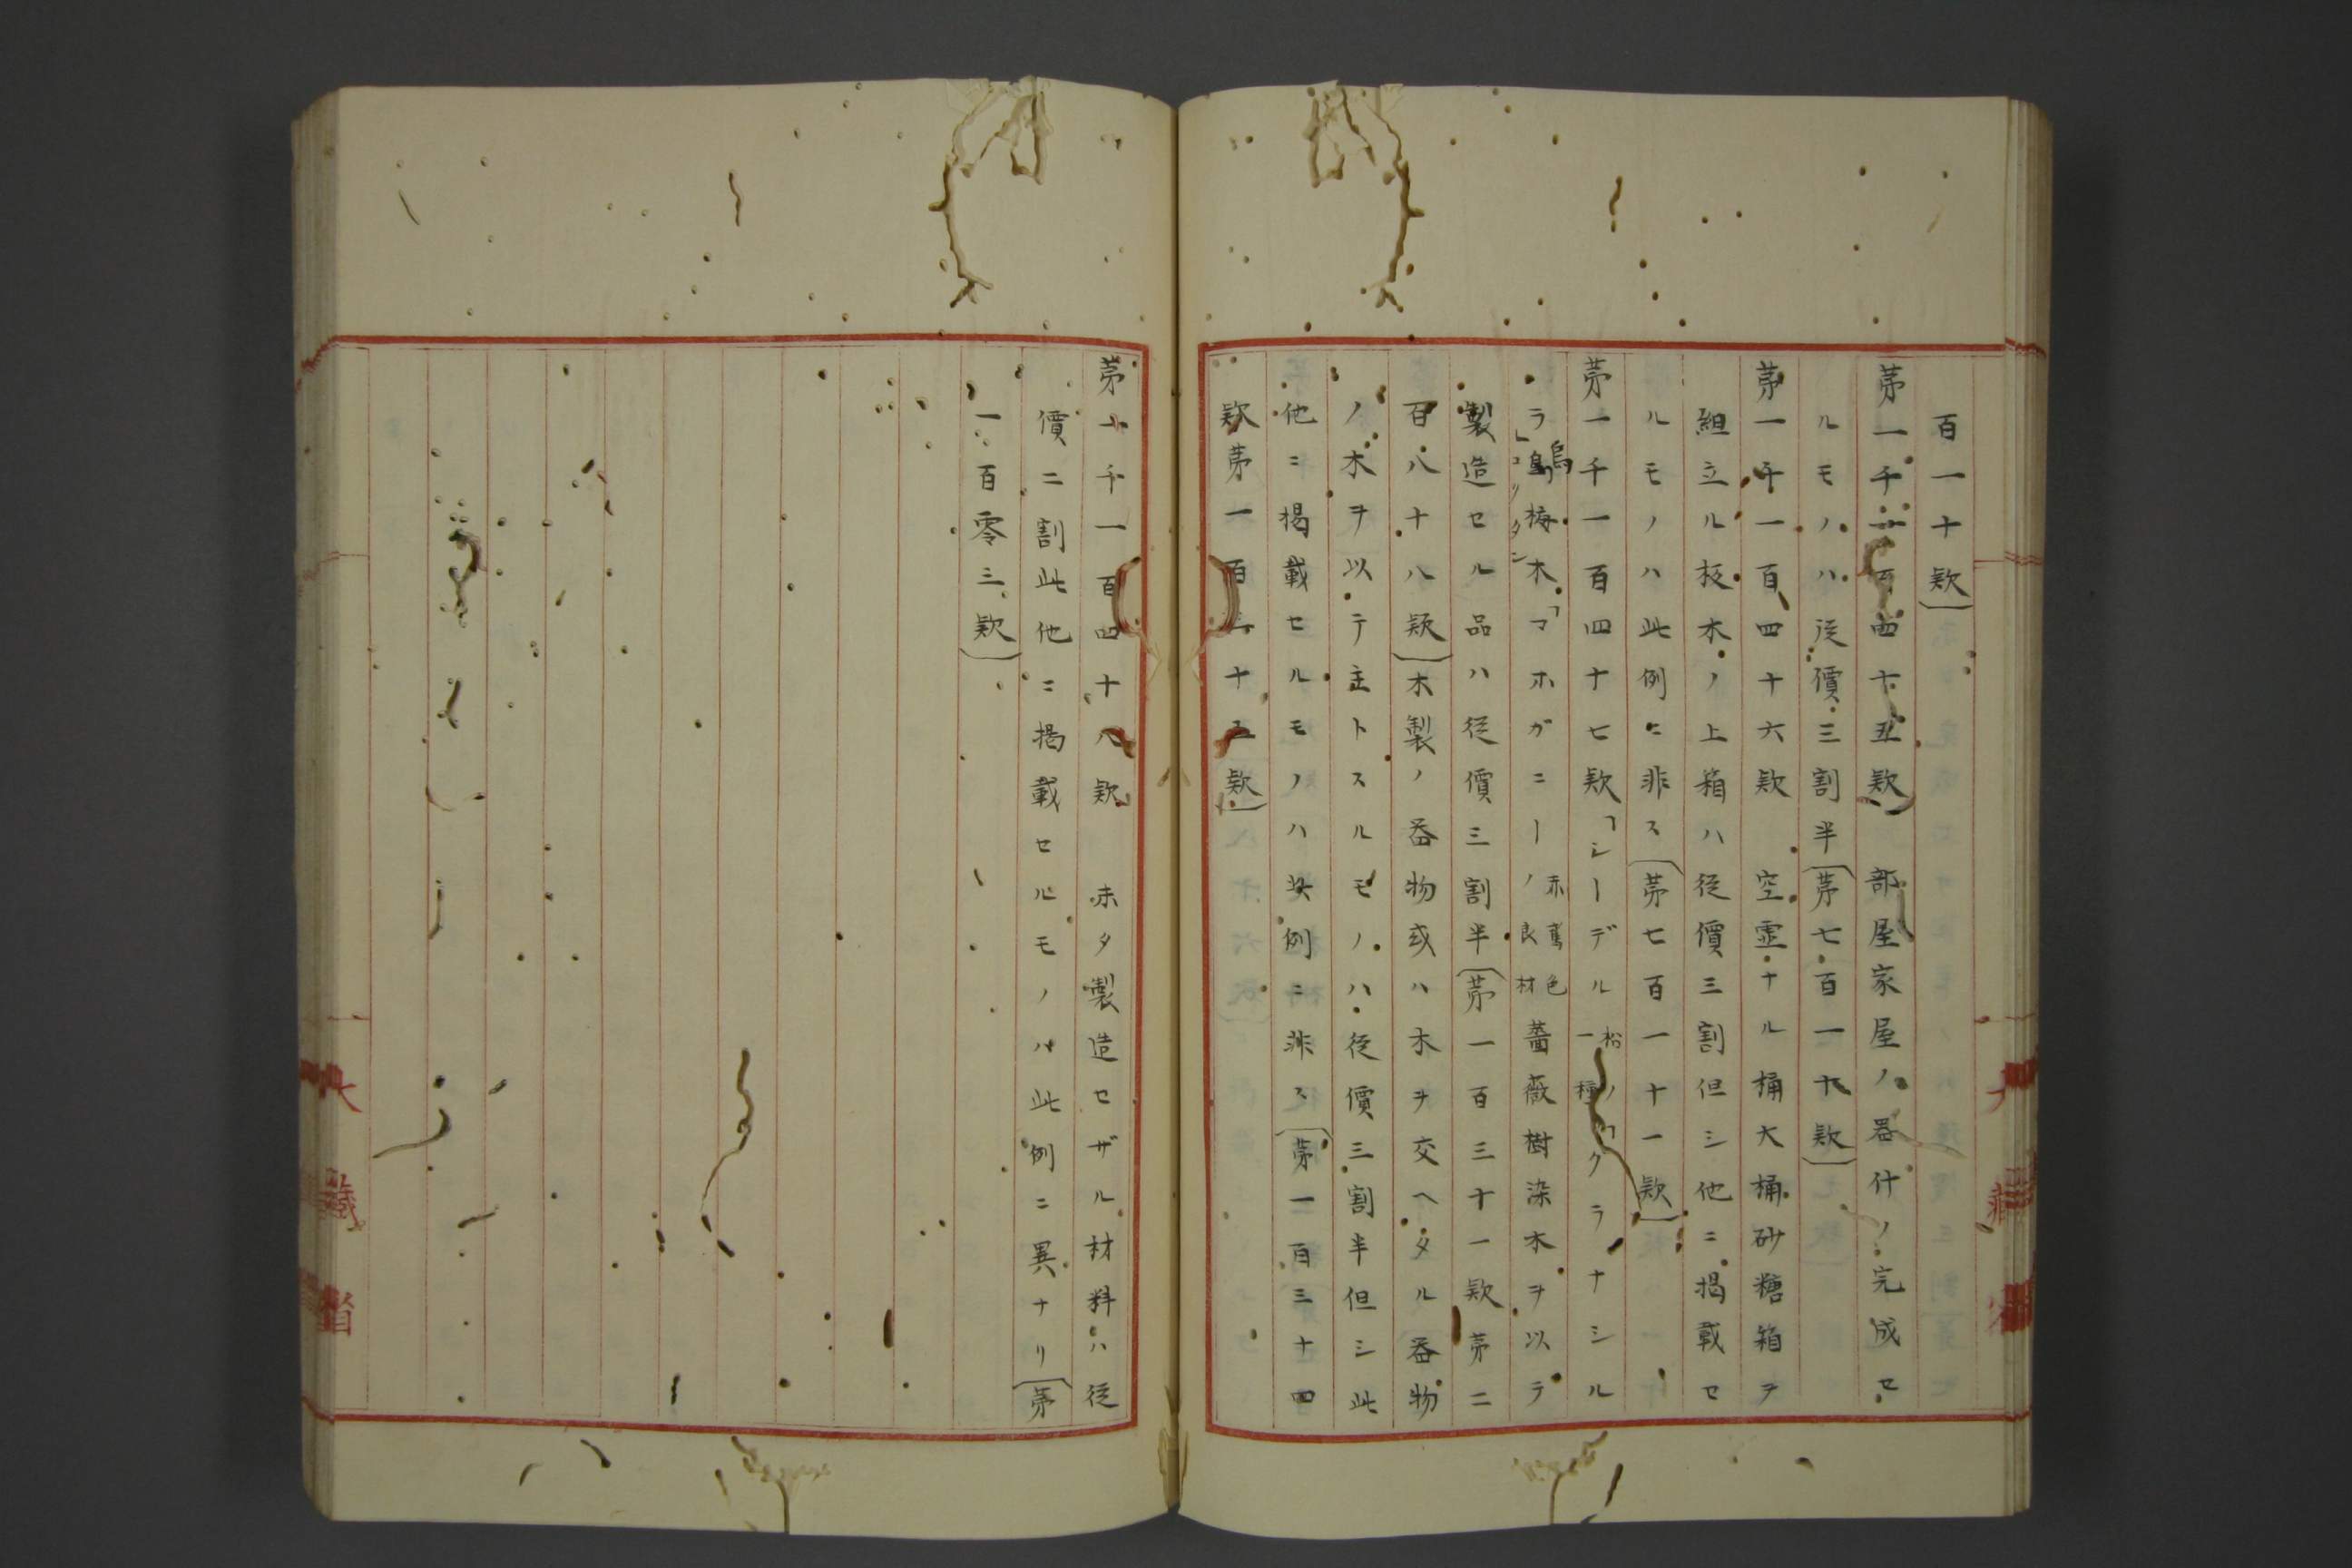 百一十款)
第一千一百四十五款 部屋家屋ノ器什ノ完成セ
ルモノハ従價三割半(第七百一十款)
第一千一百四十六款 空虚ナル桶大桶砂糖箱ヲ
組立ル板木ノ上箱ハ従價三割但シ他ニ掲載セ
ルモノハ此例ニ非ス(第七百一十一款)
第一千一百四十七款「シーデル松ノ一種「クラナシル
ラ」烏梅木「マホガニー赤鳶色ノ良材薔薇樹染木ヲ以テ
製造セル品ハ従價三割半(第一百三十一款第二
百八十八款)木製ノ呑物或ハ木ヲ交ヘタル呑物
ノ木ヲ以テ主トスルモノハ従價三割半但シ此
他ニ掲載セルモノハ此例ニ非ス(第一百三十四
款第一百三十五款)
第一千一百四十八款 未タ製造セザル材料ハ従
價二割此他ニ掲載セルモノハ此例ニ異ナリ(第
一百零三款)
大藏省
大藏省